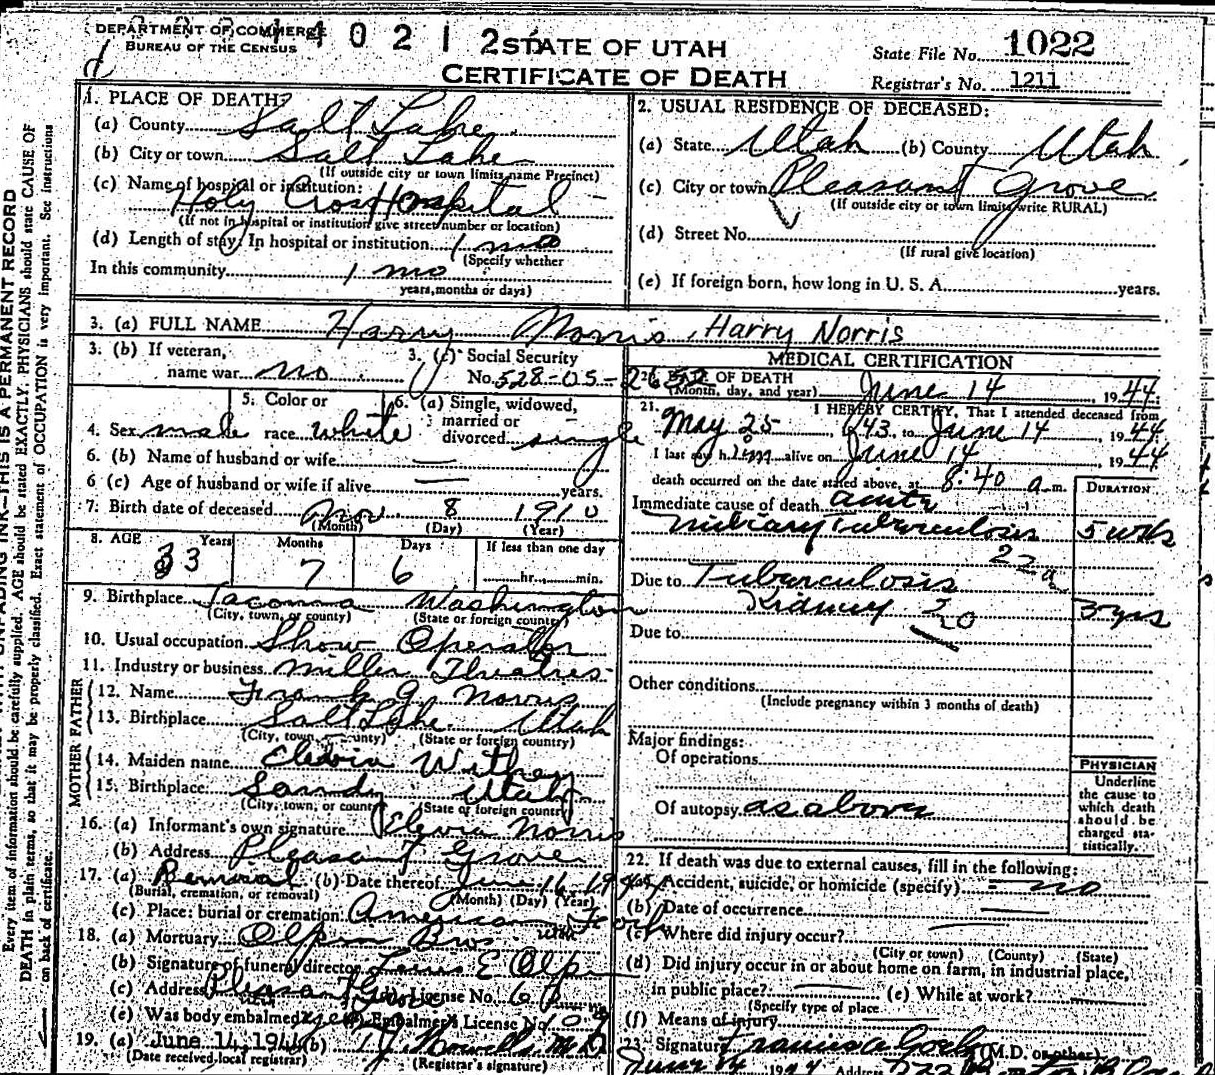 DEPARTMENT OF COMMERCE
BUREAU OF THE CENSUS
4 0 2 1 2
STATE OF UTAH
CERTIFICATE OF DEATH
State File No. 1022
Registrar's No. 1211
1. PLACE OF DEATH:
(a) County Salt Lake
(b) City or town Salt Lake
(If outside city or town limits name Precinct)
(c) Name of hospital or institution:
Holy Cross Hospital
(If not in hospital or institution give street number or location)
(d) Length of stay: In hospital or institution 1 mo
(Specify whether
In this community 1 mo
years, months or days)
2. USUAL RESIDENCE OF DECEASED:
(a) State Utah (b) County Utah
(c) City or town Pleasant Grove
(If outside city or town limits write RURAL)
(d) Street No.
(If rural give location)
(e) If foreign born, how long in U. S. A. years.
3. (a) FULL NAME Harry Norris, Harry Norris
3. (b) If veteran, name war no
3. (c) Social Security No. 528-05-2652
4. Sex male
5. Color or race white
6. (a) Single, widowed, married or divorced single
6. (b) Name of husband or wife —
6 (c) Age of husband or wife if alive — years.
7. Birth date of deceased Nov 8 1910
(Month) (Day) (Year)
8. AGE Years Months Days If less than one day
33 7 6 hr. min.
9. Birthplace Tacoma Washington
(City, town, or county) (State or foreign country)
10. Usual occupation Show Operator
11. Industry or business Miller Theatres
FATHER
12. Name Frank G. Norris
13. Birthplace Salt Lake Utah
(City, town or county) (State or foreign country)
MOTHER
14. Maiden name Elevia Withey
15. Birthplace Sandy Utah
(City, town, or county) (State or foreign country)
16. (a) Informant's own signature Elevia Norris
(b) Address Pleasant Grove
17. (a) Removal (b) Date thereof June 16 1944
(Burial, cremation, or removal) (Month) (Day) (Year)
(c) Place: burial or cremation American Fork
Utah
18. (a) Mortuary Olpin Bros
(b) Signature of funeral director Louis E Olpin
(c) Address Pleasant Grove License No.
(e) Was body embalmed? yes Embalmer's License No.
19. (a) June 14, 1944 (b)
(Date received local registrar) (Registrar's signature)
MEDICAL CERTIFICATION
20. DATE OF DEATH
(Month, day, and year) June 14, 1944
21. I HEREBY CERTIFY, That I attended deceased from
May 25, 1943, to June 14 1944
I last saw him alive on June 14, 1944
death occurred on the date stated above, at 8:40 a m.
DURATION
Immediate cause of death acute
miliary tuberculosis 5 wks
22a
Due to Tuberculosis
Kidney 3 yrs
20
Due to
Other conditions
(Include pregnancy within 3 months of death)
Major findings:
Of operations
Of autopsy as above
PHYSICIAN
Underline
the cause to
which death
should be
charged sta-
tistically.
22. If death was due to external causes, fill in the following:
(a) Accident, suicide, or homicide (specify) no
(b) Date of occurrence —
(c) Where did injury occur? —
(City or town) (County) (State)
(d) Did injury occur in or about home on farm, in industrial place,
in public place? — (e) While at work? —
(Specify type of place
(f) Means of injury —
23. Signature (M.D. or other)
June 14 1944 Address
Every item of information should be carefully supplied. AGE should be stated EXACTLY. PHYSICIANS should state CAUSE OF
DEATH in plain terms, so that it may be properly classified. Exact statement of OCCUPATION is very important. See instructions
on back of certificate.
THIS IS A PERMANENT RECORD